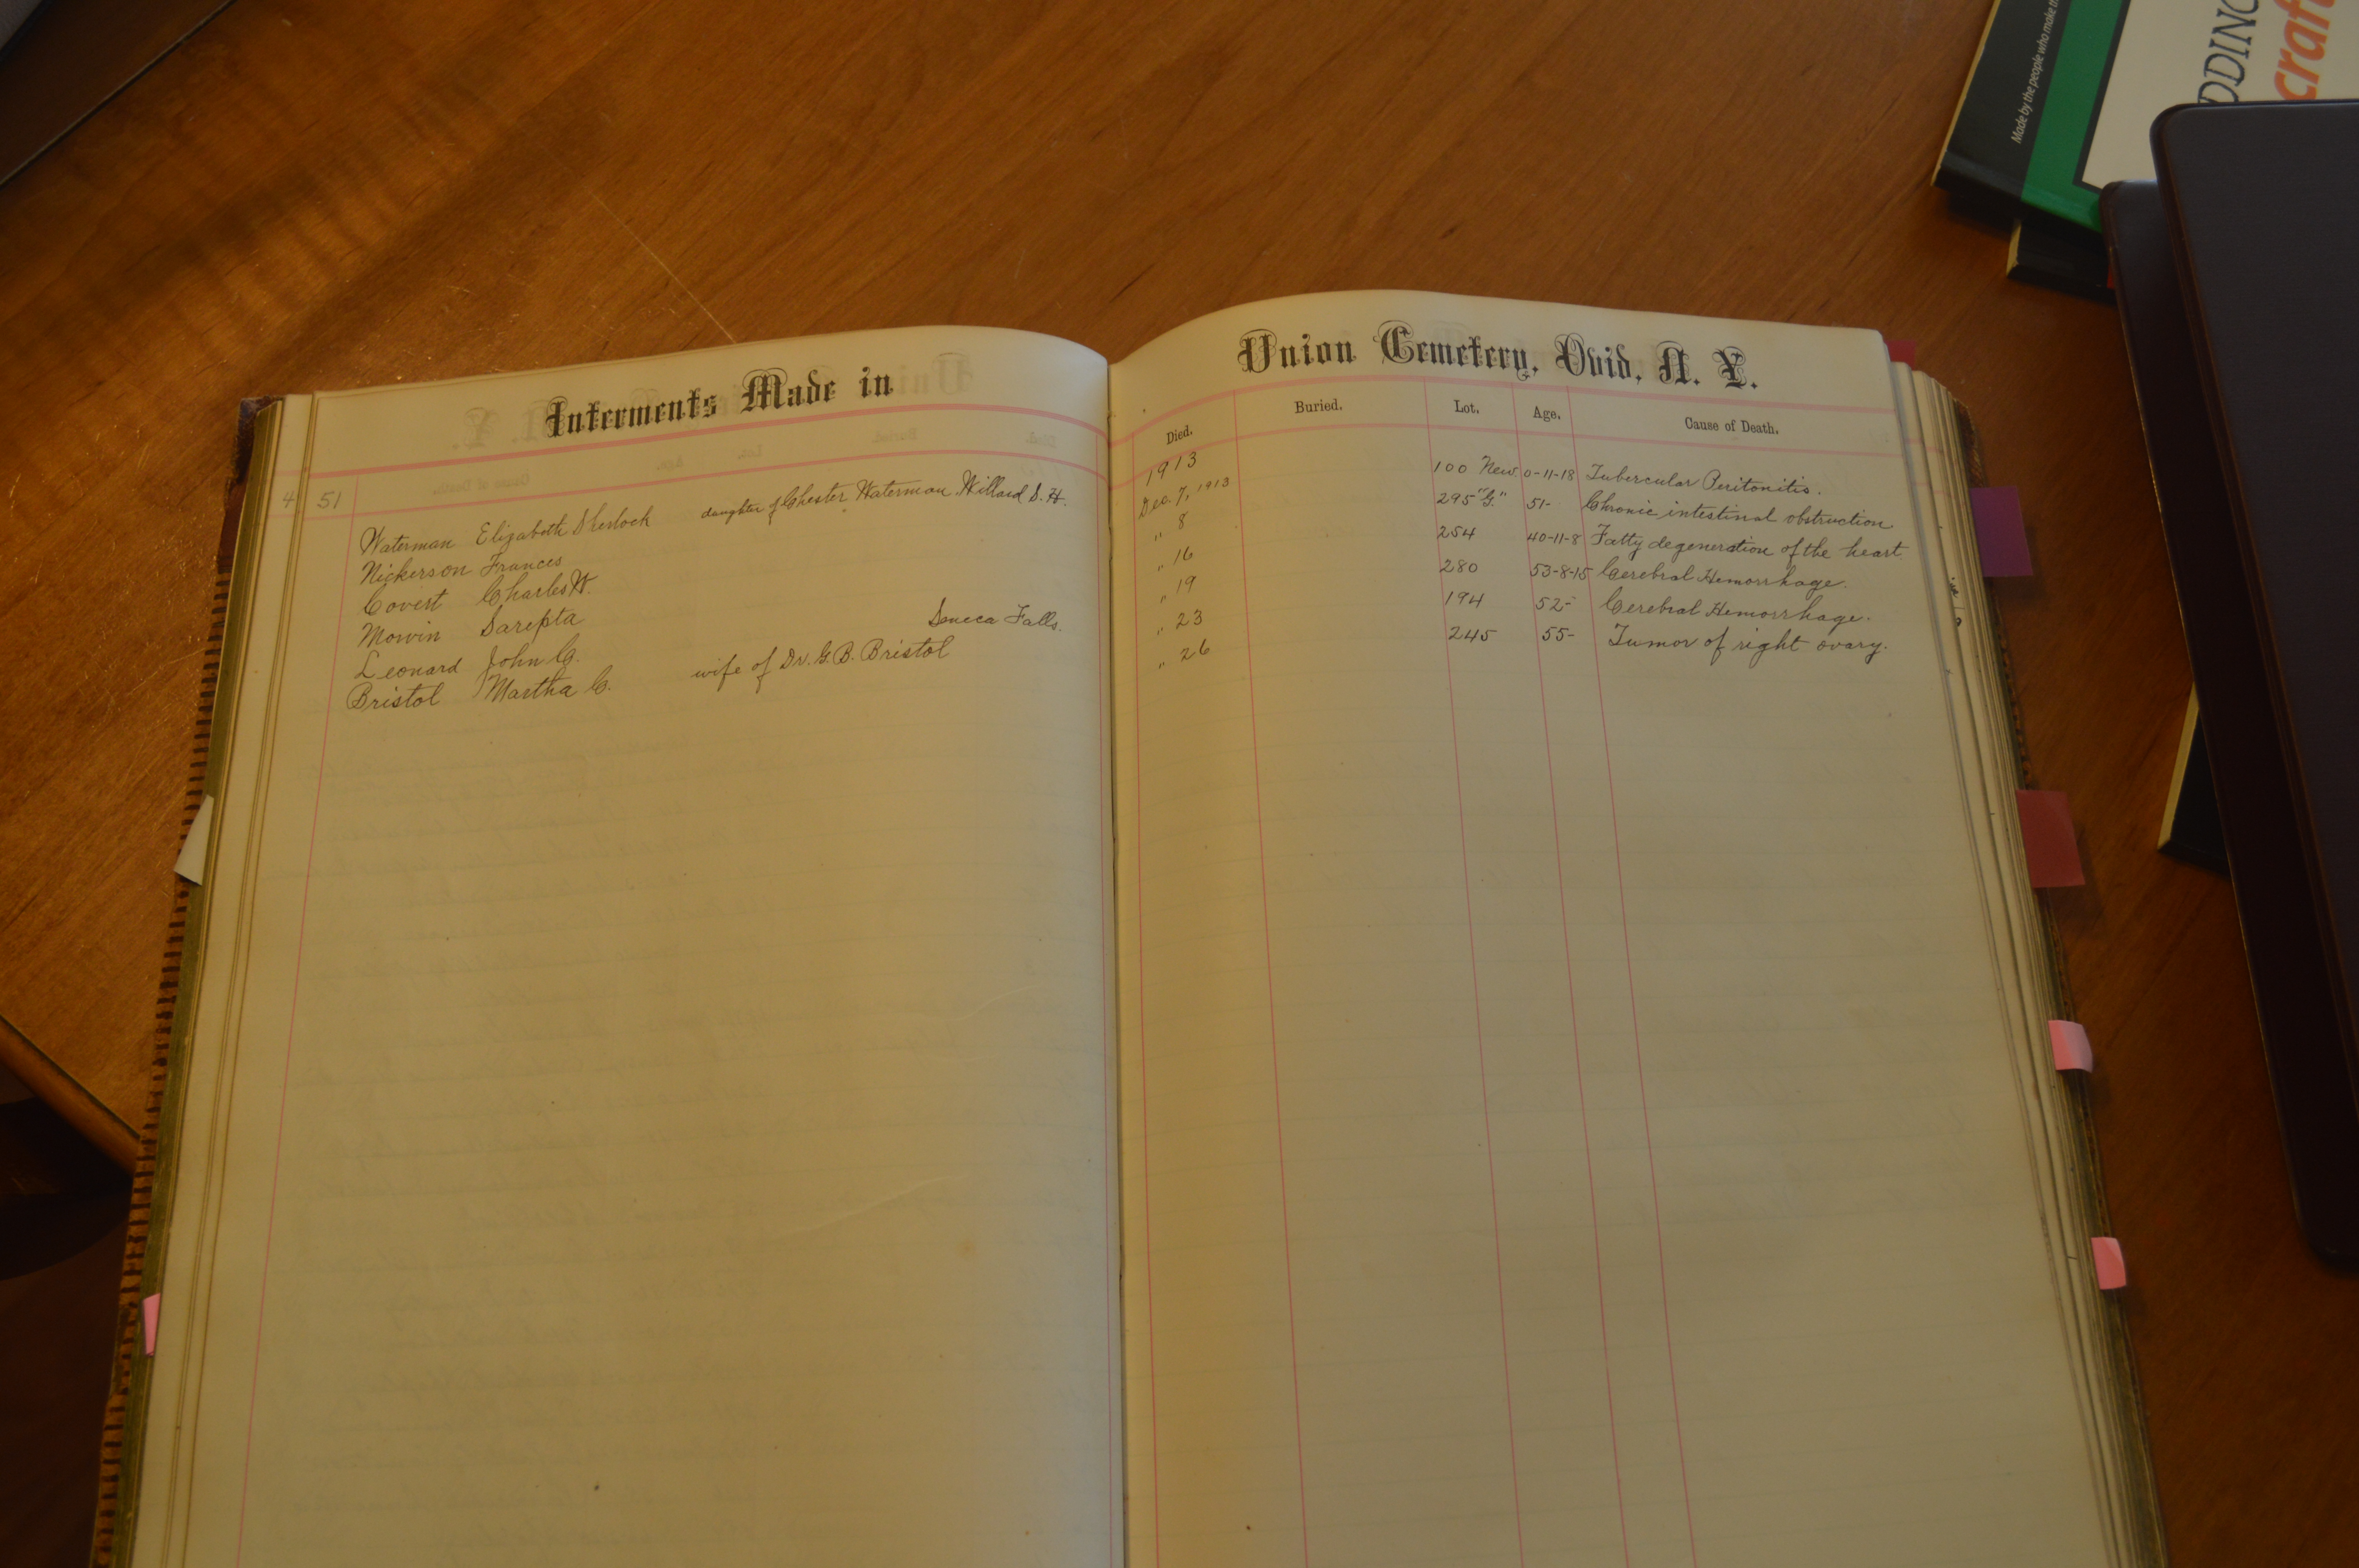 Interments Made in
4 51
Waterman Elizabeth Sherlock daughter of Chester Waterman, Willard S. H.
Nickerson Frances
Covert Charles W.
Mowin Sarepta
Leonard John C. Seneca Falls.
Bristol Martha C. wife of Dr. G. B. Bristol
Union Cemetery, Ovid, N. Y.
Died. Buried. Lot. Age. Cause of Death.
1913
Dec. 7, 1913 100 New. 0-11-18 Tubercular Peritonitis.
" 8 295 "G." 51- Chronic intestinal obstruction
" 16 254 40-11-8 Fatty degeneration of the heart
" 19 280 53-8-15 Cerebral Hemorrhage.
" 23 194 52- Cerebral Hemorrhage.
" 26 245 55- Tumor of right ovary.
Made by the people who make
DDING
craft